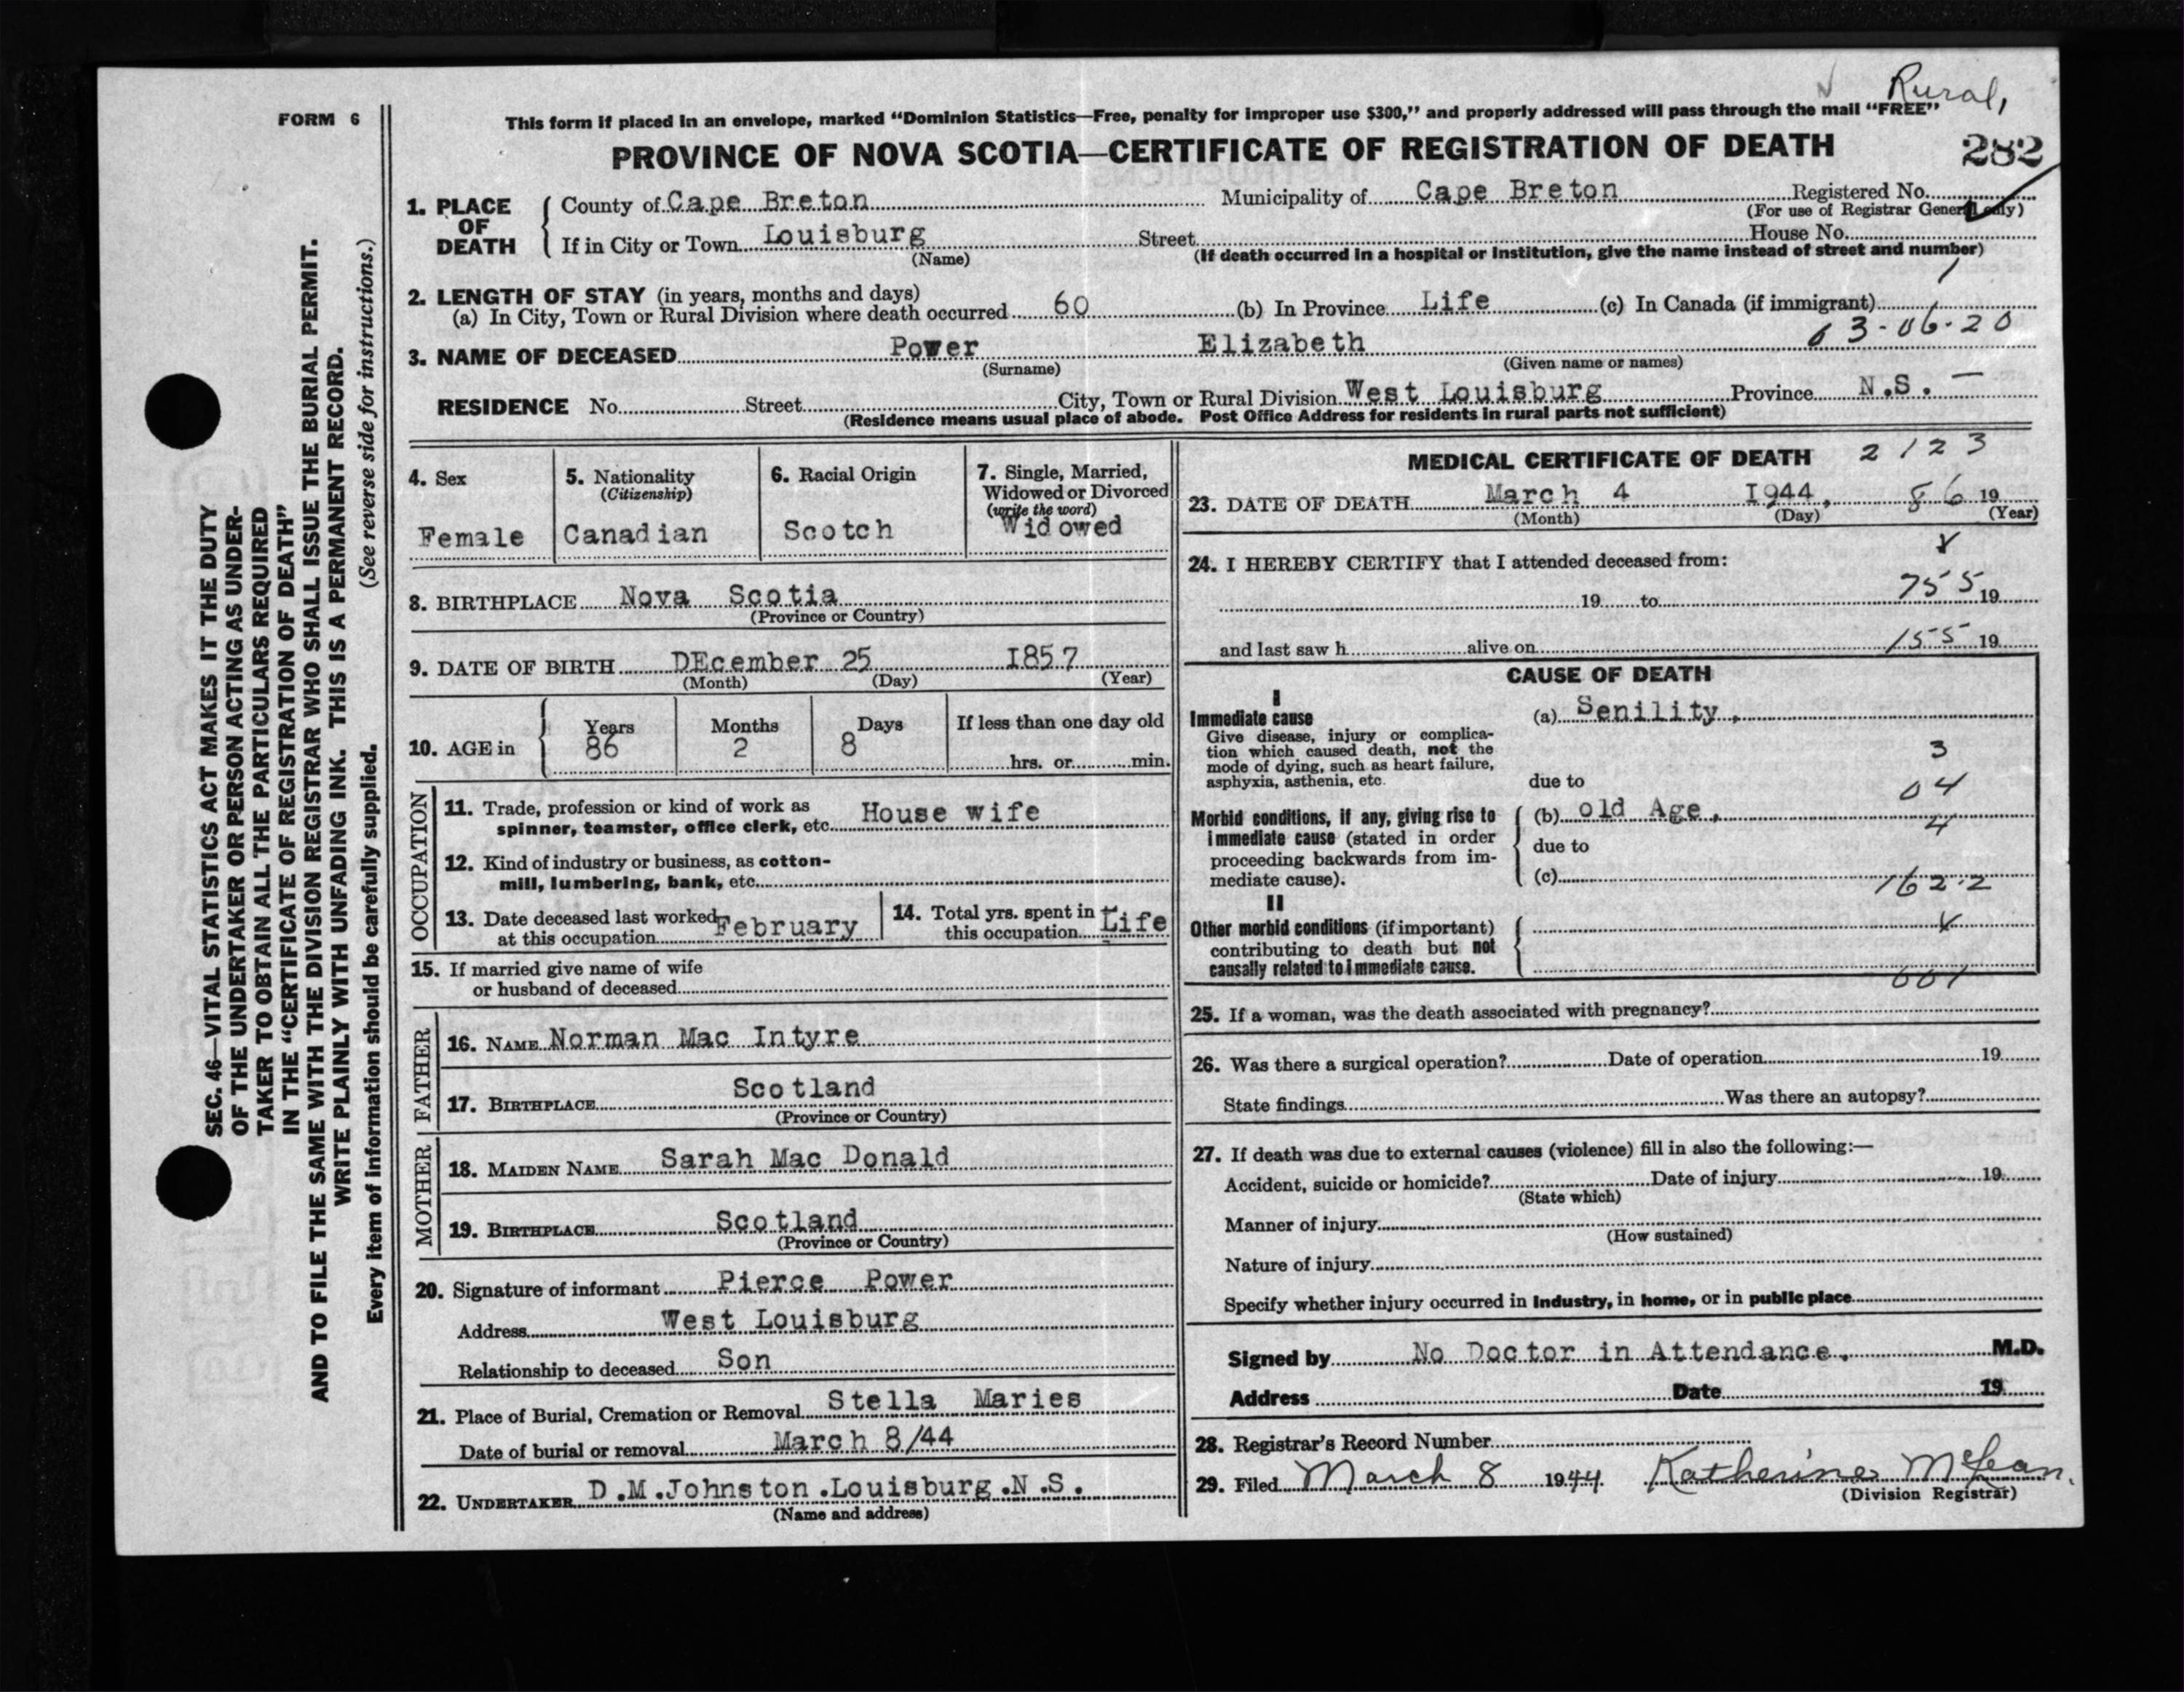 Rural,
FORM 6
This form if placed in an envelope, marked "Dominion Statistics—Free, penalty for improper use $300," and properly addressed will pass through the mail "FREE"
PROVINCE OF NOVA SCOTIA—CERTIFICATE OF REGISTRATION OF DEATH 282
1. PLACE OF DEATH
County of Cape Breton Municipality of Cape Breton Registered No.
(For use of Registrar General only)
If in City or Town Louisburg Street House No.
(Name) (If death occurred in a hospital or institution, give the name instead of street and number)
2. LENGTH OF STAY (in years, months and days)
(a) In City, Town or Rural Division where death occurred 60 (b) In Province Life (c) In Canada (if immigrant)
63-06-20
3. NAME OF DECEASED Power Elizabeth
(Surname) (Given name or names)
RESIDENCE No. Street City, Town or Rural Division West Louisburg Province N.S. —
(Residence means usual place of abode. Post Office Address for residents in rural parts not sufficient)
4. Sex
Female
5. Nationality
(Citizenship)
Canadian
6. Racial Origin
Scotch
7. Single, Married,
Widowed or Divorced
(write the word)
Widowed
8. BIRTHPLACE Nova Scotia
(Province or Country)
9. DATE OF BIRTH DEcember 25 I857
(Month) (Day) (Year)
10. AGE in
Years Months Days If less than one day old
86 2 8 hrs. or min.
OCCUPATION
11. Trade, profession or kind of work as
spinner, teamster, office clerk, etc. House wife
12. Kind of industry or business, as cotton-
mill, lumbering, bank, etc.
13. Date deceased last worked
at this occupation February
14. Total yrs. spent in
this occupation Life
15. If married give name of wife
or husband of deceased
FATHER
16. NAME Norman Mac Intyre
17. BIRTHPLACE Scotland
(Province or Country)
MOTHER
18. MAIDEN NAME Sarah Mac Donald
19. BIRTHPLACE Scotland
(Province or Country)
20. Signature of informant Pierce Power
Address West Louisburg
Relationship to deceased Son
21. Place of Burial, Cremation or Removal Stella Maries
Date of burial or removal March 8/44
22. UNDERTAKER D.M.Johnston.Louisburg.N.S.
(Name and address)
MEDICAL CERTIFICATE OF DEATH 2123
23. DATE OF DEATH March 4 I944. 86 19
(Month) (Day) (Year)
24. I HEREBY CERTIFY that I attended deceased from:
19 to 755 19
and last saw h alive on 155 19
CAUSE OF DEATH
I
Immediate cause
Give disease, injury or complica-
tion which caused death, not the
mode of dying, such as heart failure,
asphyxia, asthenia, etc.
(a) Senility,
3
due to
04
Morbid conditions, if any, giving rise to
immediate cause (stated in order
proceeding backwards from im-
mediate cause).
(b) old Age,
4
due to
(c)
162.2
II
Other morbid conditions (if important)
contributing to death but not
causally related to immediate cause.
001
25. If a woman, was the death associated with pregnancy?
26. Was there a surgical operation? Date of operation 19
State findings Was there an autopsy?
27. If death was due to external causes (violence) fill in also the following:—
Accident, suicide or homicide? Date of injury 19
(State which)
Manner of injury
(How sustained)
Nature of injury
Specify whether injury occurred in industry, in home, or in public place
Signed by No Doctor in Attendance. M.D.
Address Date 19
28. Registrar's Record Number
29. Filed March 8 1944. Katherine McLean.
(Division Registrar)
SEC. 46—VITAL STATISTICS ACT MAKES IT THE DUTY
OF THE UNDERTAKER OR PERSON ACTING AS UNDER-
TAKER TO OBTAIN ALL THE PARTICULARS REQUIRED
IN THE "CERTIFICATE OF REGISTRATION OF DEATH"
AND TO FILE THE SAME WITH THE DIVISION REGISTRAR WHO SHALL ISSUE THE BURIAL PERMIT.
WRITE PLAINLY WITH UNFADING INK. THIS IS A PERMANENT RECORD.
Every item of information should be carefully supplied. (See reverse side for instructions.)